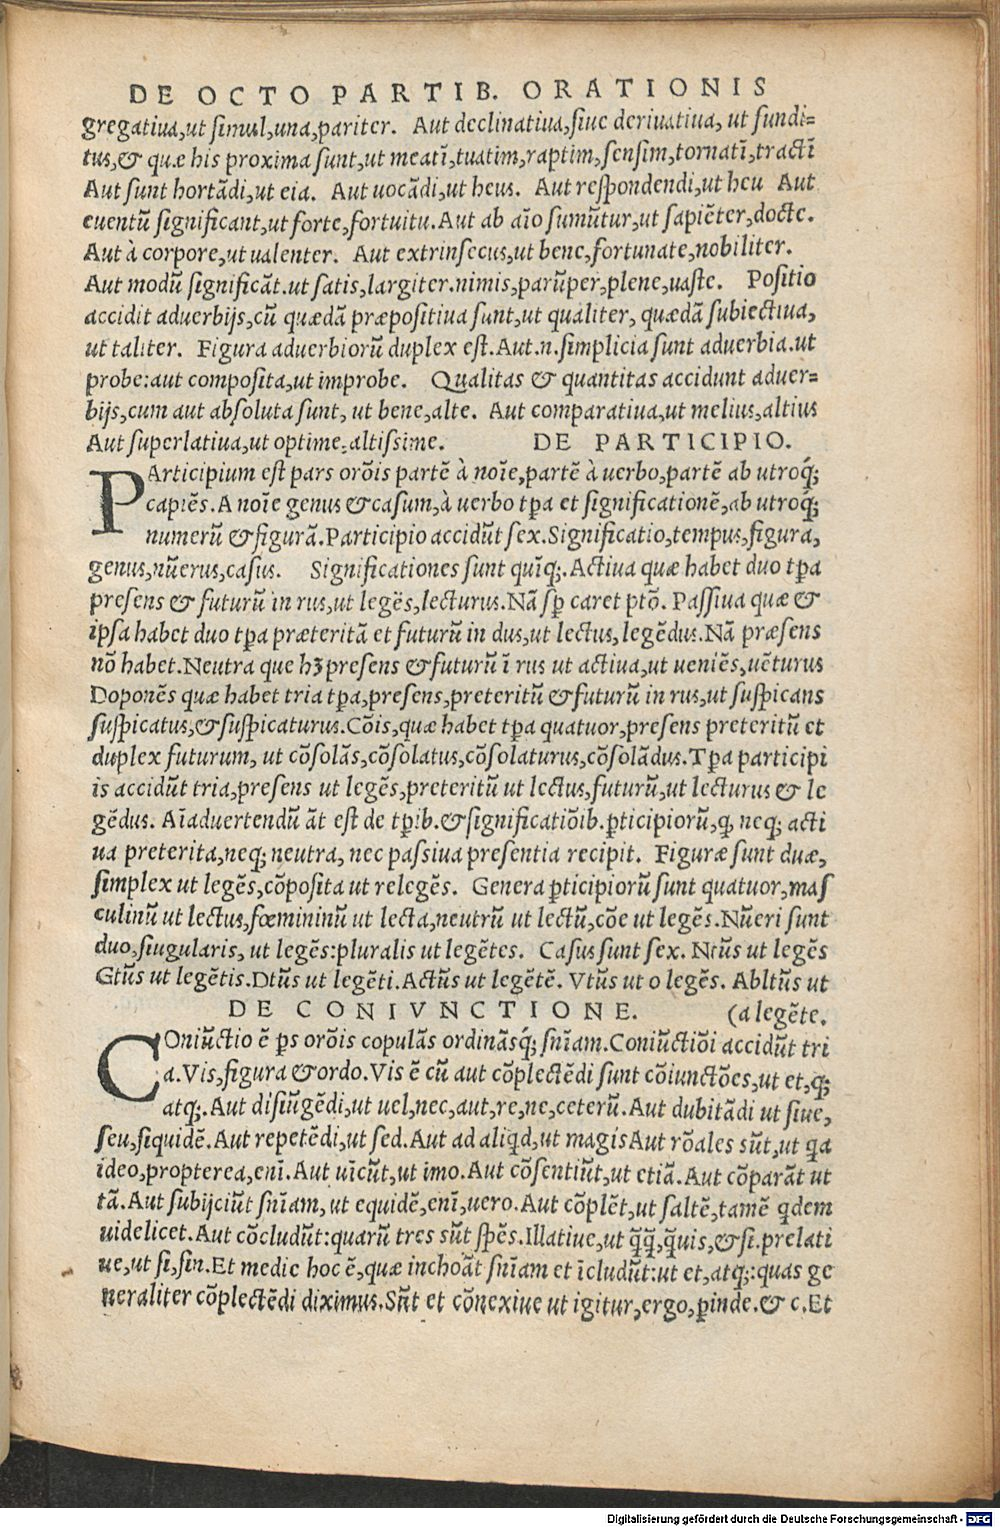 DE OCTO PARTIB. ORATIONIS
gregatiua,ut simul,una,pariter. Aut declinatiua,siue deriuatiua, ut fundi=
tus,& quæ his proxima sunt,ut meatī,tuatim,raptim,sensim,tornatī,tractī
Aut sunt hortādi,ut eia. Aut uocādi,ut heus. Aut respondendi,ut heu Aut
euentū significant,ut forte,fortuitu.Aut ab aīo sumūtur,ut sapiēter,docte.
Aut à corpore,ut ualenter. Aut extrinsecus,ut bene,fortunate,nobiliter.
Aut modū significāt.ut satis,largiter.nimis,parūper,plene,uaste. Positio
accidit aduerbijs,cū quædā præpositiua sunt,ut qualiter, quædā subiectiua,
ut taliter. Figura aduerbiorū duplex est.Aut.n.simplicia sunt aduerbia.ut
probe:aut composita,ut improbe. Qualitas & quantitas accidunt aduer=
bijs,cum aut absoluta sunt, ut bene,alte. Aut comparatiua,ut melius,altius
Aut superlatiua,ut optime,altissime. DE PARTICIPIO.
PArticipium est pars orōis partē à noīe,partē à uerbo,partē ab utroq́;
capiēs.A noīe genus & casum,à uerbo tꝑa et significationē,ab utroq́;
numerū & figurā.Participio accidūt sex.Significatio,tempus,figura,
genus,nūerus,casus. Significationes sunt quīq;.Actiua quæ habet duo tꝑa
presens & futurū in rus,ut legēs,lecturus.Nā sꝑ caret ptō. Passiua quæ &
ipsa habet duo tꝑa præteritā et futurū in dus,ut lectus,legēdus.Nā præsens
nō habet.Neutra que hꝫ presens & futurū ī rus ut actiua,ut ueniēs,uēturus
Doponēs quæ habet tria tꝑa,presens,preteritū & futurū in rus,ut suspicans
suspicatus,& suspicaturus.Cōis,quæ habet tꝑa quatuor,presens preteritū et
duplex futurum, ut cōsolās,cōsolatus,cōsolaturus,cōsolādus.Tꝑa participi
is accidūt tria,presens ut legēs,preteritū ut lectus,futurū,ut lecturus & le
gēdus. Aīaduertendū āt est de tꝑib.& significatiōib.ꝑticipiorū,q̨ neq; acti
ua preterita,neq; neutra, nec passiua presentia recipit. Figuræ sunt duæ,
simplex ut legēs,cōposita ut relegēs. Genera ꝑticipiorū sunt quatuor,mas
culinū ut lectus,fœmininū ut lecta,neutrū ut lectū,cōe ut legēs.Nūeri sunt
duo,siugularis, ut legēs:pluralis ut legētes. Casus sunt sex. Ntūs ut legēs
Gtūs ut legētis.Dtūs ut legēti.Actūs ut legētē. Vtūs ut o legēs. Abltūs ut
DE CONIVNCTIONE. (a legēte.
COniūctio ē ꝑs orōis copulās ordināsq́; snīam.Coniūctiōi accidūt tri
a.Vis,figura & ordo.Vis ē cū aut cōplectēdi sunt cōiunctōes,ut et,q;
atq;.Aut disiūgēdi,ut uel,nec,aut,re,ne,ceterū.Aut dubitādi ut siue,
seu,siquidē.Aut repetēdi,ut sed.Aut ad aliq̇d,ut magisAut rōales sūt,ut q̄a
ideo,propterea,enī.Aut uīcūt,ut imo.Aut cōsentiūt,ut etiā.Aut cōparāt ut
tā.Aut subijciūt snīam, ut equidē,enī,uero.Aut cōplēt,ut saltē,tamē q̇dem
uidelicet.Aut cōcludūt:quarū tres sūt spēs.Illatiue,ut q̄q̄,q̄uis,& si.prelati
ue,ut si,sin.Et medie hoc ē,quæ inchoāt snīam et īcludūt:ut et,atq;:quas ge
neraliter cōplectēdi diximus.Sūt et cōnexiue ut igitur,ergo,ꝑinde.& c.Et
Digitalisierung gefördert durch die Deutsche Forschungsgemeinschaft - DFG